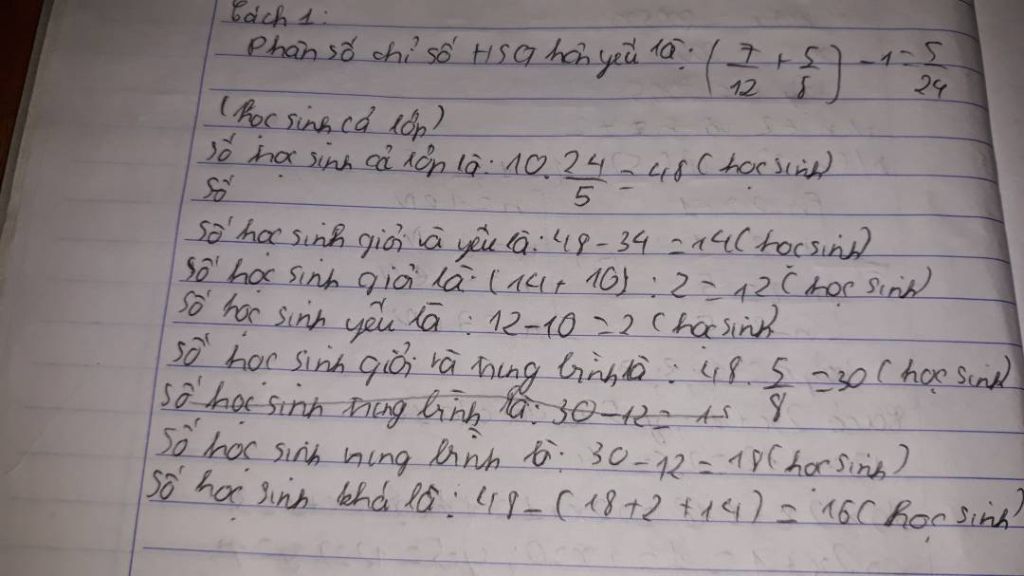 Cách 1:
Phân số chỉ số HSG hơn yếu là: (7/12 + 5/8) - 1 = 5/24
(học sinh cả lớp)
Số học sinh cả lớp là: 10. 24/5 = 48 (học sinh)
Số
Số học sinh giỏi và yếu là: 48 - 34 = 14 (học sinh)
Số học sinh giỏi là: (14 + 10) : 2 = 12 (học sinh)
Số học sinh yếu là : 12 - 10 = 2 (học sinh)
Số học sinh giỏi và trung bình là : 48. 5/8 = 30 (học sinh)
Số học sinh trung bình là: 30 - 12 = 18
Số học sinh trung bình là: 30 - 12 = 18 (học sinh)
Số học sinh khá là : 48 - (18 + 2 + 14) = 16 (học sinh)